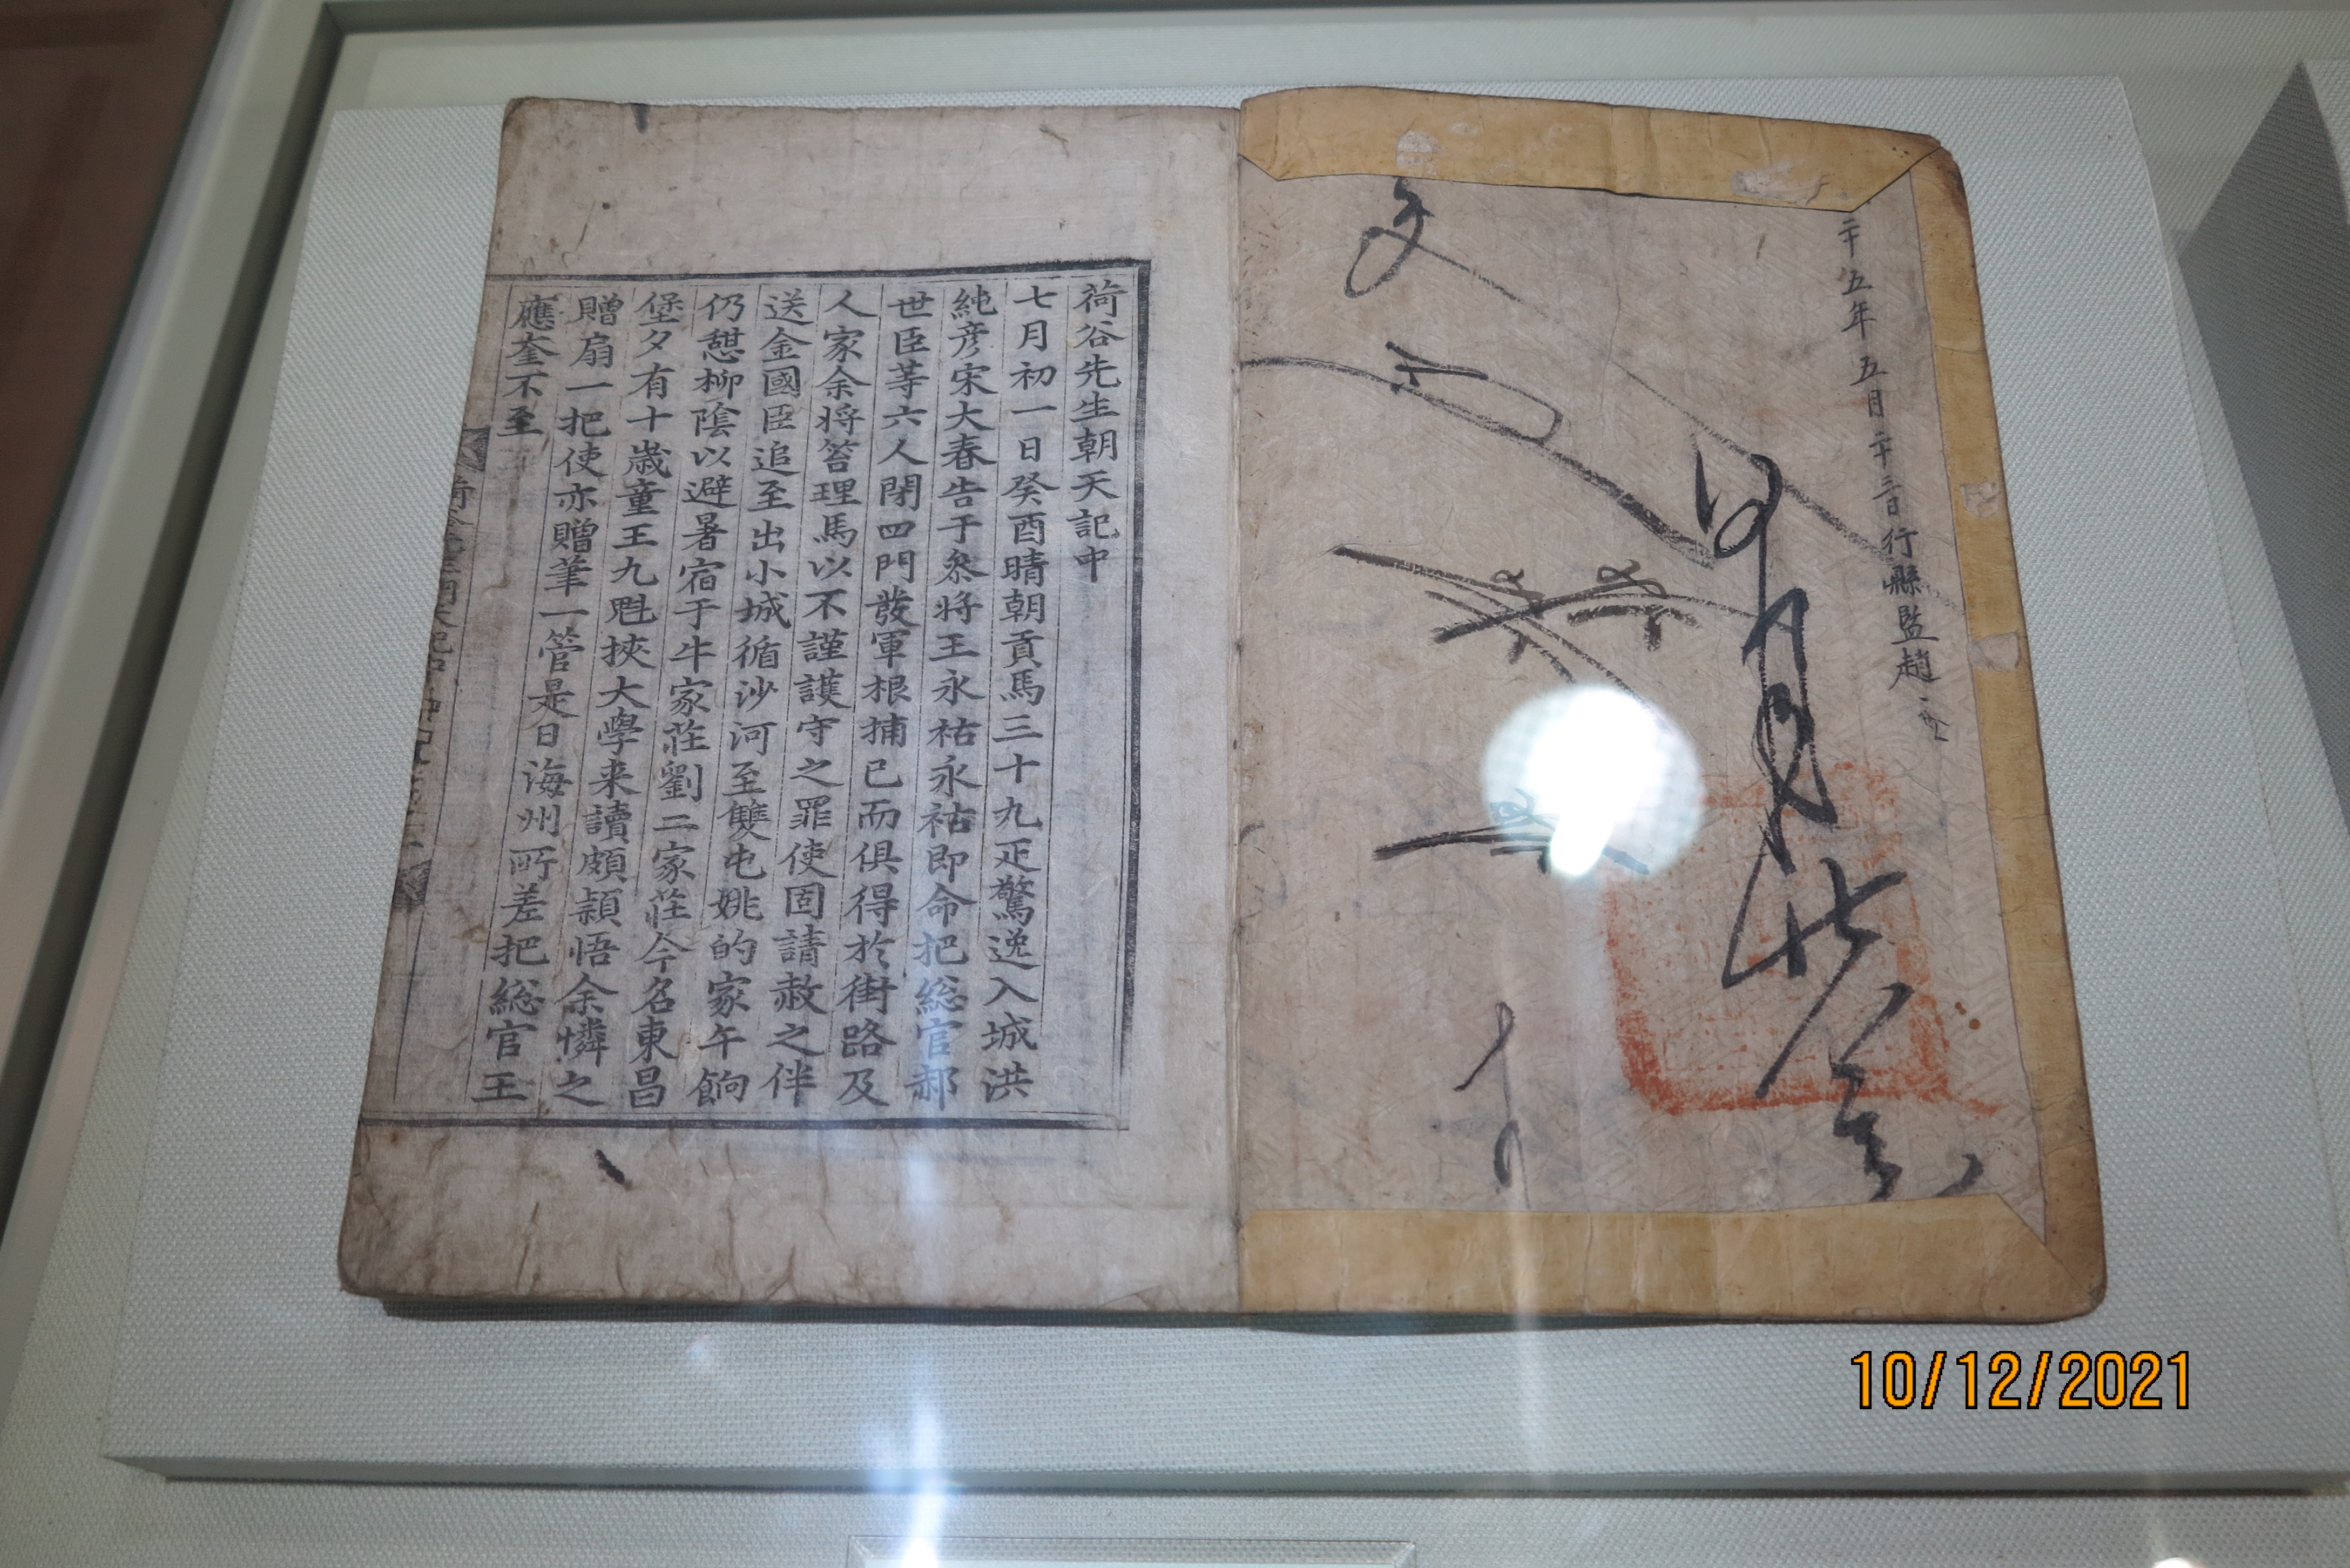 二十五年五月二十三日行縣監趙
荷谷先生朝天記中
七月初一日癸酉晴朝貢馬三十九疋驚逸入城洪
純彦宋大春告于叅将王永祐永祜即命把総官郝
世臣等六人閉四門發軍根捕已而俱得於街路及
人家余将笞理馬以不謹護守之罪使固請赦之伴
送金國臣追至出小城循沙河至雙屯姚的家午餉
仍憇柳陰以避暑宿于牛家莊劉二家莊今名東昌
堡夕有十歳童王九兠挾大學来讀頗穎悟余憐之
贈扇一把使亦贈筆一管是日海州所差把総官王
應奎不至
10/12/2021